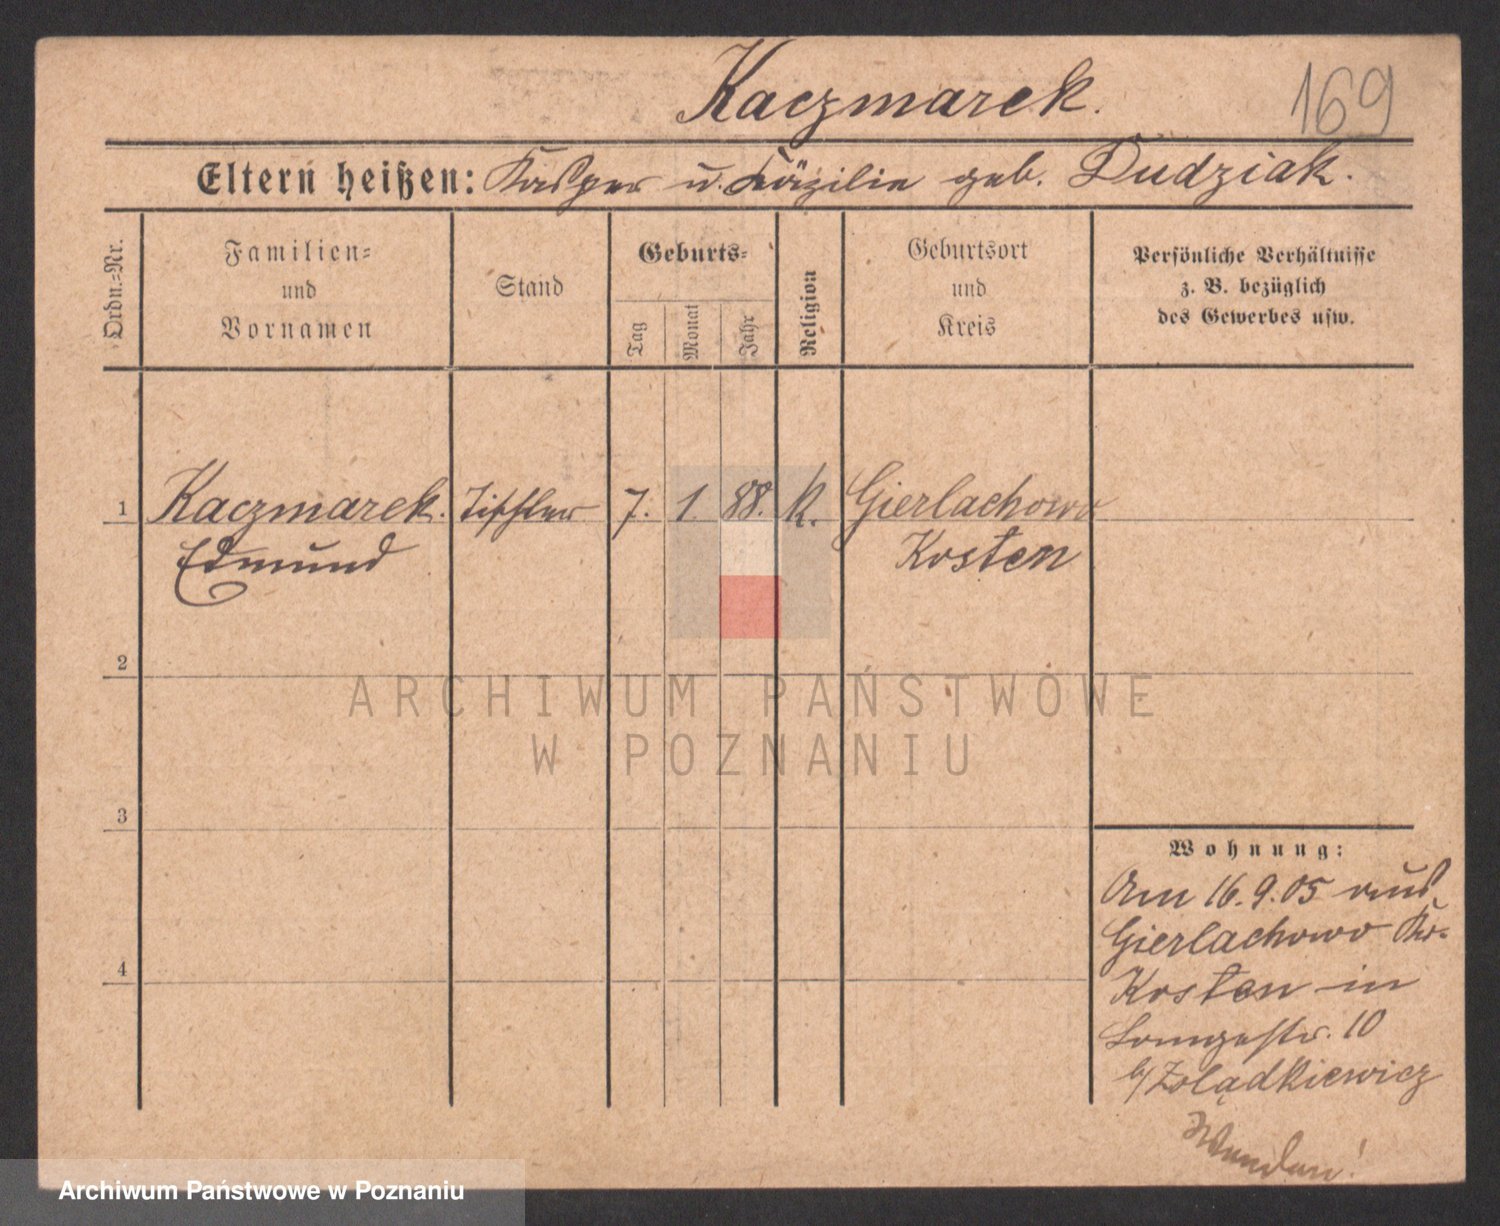 Kaczmarek.
169
Eltern heißen: Kasper u. Cäzilie geb. Dudziak.
Ordn.=Nr.
Familien=
und
Vornamen
Stand
Geburts=
Tag
Monat
Jahr
Religion
Geburtsort
und
Kreis
Persönliche Verhältnisse
z. B. bezüglich
des Gewerbes usw.
1 Kaczmarek. Tischler 7. 1. 88. K. Gierlachowo
Edmund Kosten
2
3
4
Wohnung:
Am 16.9.05 aus
Gierlachowo Kr.
Kosten in
Langestr. 10
b/Zolądkiewicz
Wenden!
ARCHIWUM PAŃSTWOWE
W POZNANIU
Archiwum Państwowe w Poznaniu